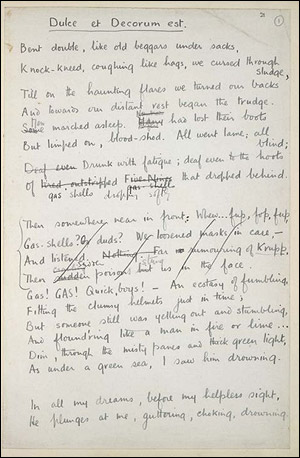 Dulce et Decorum est.
2
1
Bent double, like old beggars under sacks,
Knock-kneed, coughing like hags, we cursed through
sludge,
Till on the haunting flares we turned our backs
And towards our distant rest began to trudge.
Men marched asleep. Many had lost their boots
But limped on, blood-shod. All went lame; all
blind;
Deaf even Drunk with fatigue; deaf even to the hoots
Of tired, outstripped Five-Nines that dropped behind.
gas shells dropping softly
gas-shells
Then somewhere near in front: Whew... fup, fop, fup
Gas-shells? Or duds? We loosened masks, in case, —
And listened. Nothing. Far rumouring of Krupp.
Then sudden poisons hit us in the face.
Gas! GAS! Quick, boys! — An ecstasy of fumbling,
Fitting the clumsy helmets just in time;
But someone still was yelling out and stumbling,
And flound'ring like a man in fire or lime ...
Dim, through the misty panes and thick green light,
As under a green sea, I saw him drowning.
In all my dreams, before my helpless sight,
He plunges at me, guttering, choking, drowning.